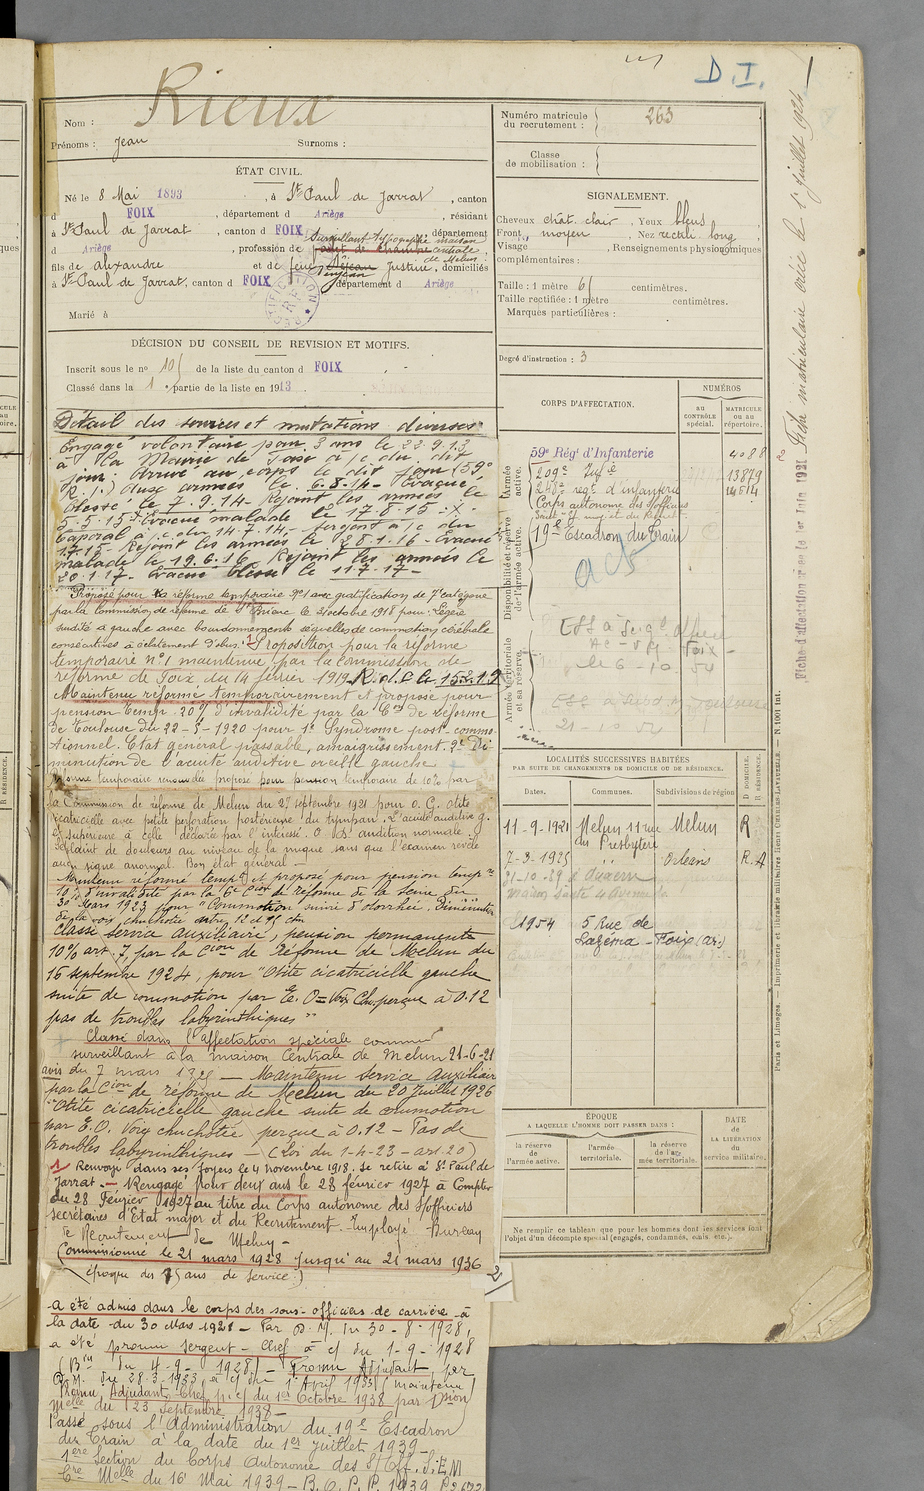 D.I.
Nom : Rieux
Prénoms : Jean Surnoms :
ÉTAT CIVIL.
Né le 8 Mai 1893, à St Paul de Jarrat, canton
d FOIX, département d Ariège, résidant
à St Paul de Jarrat, canton d FOIX, département
d Ariège, profession de Surveillant maison centrale de Melun
fils de Alexandre et de feue Justine, domiciliés
à St Paul de Jarrat, canton d FOIX département d Ariège
Marié à
DÉCISION DU CONSEIL DE REVISION ET MOTIFS.
Inscrit sous le no 10 de la liste du canton d FOIX
Classé dans la 1e partie de la liste en 1913
Détail des services et mutations diverses
Engagé volontaire pour 3 ans le 22.9.13
à la Mairie de Foix à c. du dit
jour. Arrivé au corps le dit jour (59e
R.I.) aux armées le 6.8.14 - Evacué
blessé le 7.9.14 - Rejoint les armées le
5.5.15 - Evacué malade le 17.8.15
Caporal à c. du 14.7.14 -
Rejoint les armées le 28.1.16 - Evacué
malade le 19.6.16 Rejoint les armées le
20.1.17 - Evacué blessé le 11.7.17 -
Proposé pour la réforme temporaire No1 avec gratification de 7e catégorie
par la Commission de réforme de St Brieuc le 3 octobre 1918 pour : Légère
surdité à gauche avec bourdonnements séquelles de commotion cérébrale
consécutives à éclatement d'obus. Proposition pour la réforme
temporaire no 1 maintenue par la Commission de
réforme de Foix du 14 février 1919.
Maintenu réformé temporairement et proposé pour
pension temp. 20% d'invalidité par la Con de réforme
de Toulouse du 22-5-1920 pour 1o Syndrome post-commo-
tionnel. Etat général passable, amaigrissement. 2o Di-
minution de l'acuité auditive oreille gauche
Réforme temporaire renouvelée proposé pour pension temporaire de 10% par
la Commission de réforme de Melun du 27 septembre 1921 pour O.G. otite
cicatricielle avec petite perforation postérieure du tympan. L'acuité auditive g.
est supérieure à celle déclarée par l'intéressé. O D. audition normale.
Se plaint de douleurs au niveau de la nuque sans que l'examen révèle
aucun signe anormal. Bon état général -
Maintenu réformé tempre et proposé pour pension tempre
10% d'invalidité par la 6e Cion de réforme de la Seine du
30 Mars 1923 pour "Commotion suivie d'otorrhée. Diminution
de la voix chuchotée entre 12 et 15 cm
Classé service auxiliaire, pension permanente
10% art. 7, par la Cion de Réforme de Melun du
16 septembre 1924, pour "Otite cicatricielle gauche
suite de commotion par E. O = Voix Ch. perçue à 0.12
pas de troubles labyrinthiques"
Classé dans l'affectation spéciale comme
surveillant à la maison Centrale de Melun 21-6-21
avis du 7 mars 1925 - Maintenu service auxiliaire
par la Cion de réforme de Melun du 20 juillet 1926
"Otite cicatricielle gauche suite de commotion
par E.O. Voix chuchotée perçue à 0.12 - Pas de
troubles labyrinthiques - (loi du 1-4-23 - art. 20)
1 Renvoyé dans ses foyers le 4 novembre 1918. Se retire à St Paul de
Jarrat. - Rengagé pour deux ans le 28 février 1927 à Compter
du 28 Février 1927 au titre du Corps autonome des S/officiers
secrétaires d'Etat major et du Recrutement. Employé Bureau
de Recrutement de Melun -
Commissionné le 21 mars 1928 jusqu'au 21 mars 1936
(époque des 25 ans de service.)
a été admis dans le corps des sous-officiers de carrière à
la date du 30 Mars 1928 - Par D.M. du 30-8-1928,
a été promu sergent-chef à c/ du 1-9-1928
(Bin du 4-9-1928) - Promu Adjudant par
D.M. du 28.3.1933, à c/ du 1er Avril 1933 (maintenu)
Promu Adjudant-Chef p.c/ du 1er Octobre 1938 par Dsion
Melle du 23 Septembre 1938 -
Passé sous l'Administration du 19e Escadron
du Train à la date du 1er juillet 1939 -
1ère Section du Corps Autonome des S/Off. S.E.M
Cre Melle du 16 Mai 1939 - B.O.P.P. 1939 P 2672
Numéro matricule du recrutement : 263
Classe de mobilisation :
SIGNALEMENT.
Cheveux chât. clair, Yeux bleus
Front moyen, Nez rectil. long
Visage, Renseignements physionomiques
complémentaires :
Taille : 1 mètre 61 centimètres.
Taille rectifiée : 1 mètre centimètres.
Marques particulières :
Degré d'instruction : 3
CORPS D'AFFECTATION.
NUMÉROS
au CONTRÔLE spécial.
MATRICULE ou au répertoire.
Armée active.
Disponibilité et réserve de l'armée active.
Armée territoriale et sa réserve.
59e Régt d'Infanterie 4088
209e Infie 13879
248e régt d'infanterie 14514
Corps autonome des s/officiers
19e Escadron du Train
LOCALITÉS SUCCESSIVES HABITÉES
PAR SUITE DE CHANGEMENTS DE DOMICILE OU DE RÉSIDENCE.
Dates. Communes. Subdivisions de région. D. DOMICILE. R. RÉSIDENCE.
11-9-1921 Melun 11 rue du Presbytère Melun R
7-3-1925 " Orléans R.A
21-10-29 à Auxerre
1954 5 Rue de
Lazéma - Foix (Ar.)
ÉPOQUE
A LAQUELLE L'HOMME DOIT PASSER DANS :
la réserve de l'armée active.
l'armée territoriale.
la réserve de l'armée territoriale.
DATE de LA LIBÉRATION du service militaire.
Ne remplir ce tableau que pour les hommes dont les services font
l'objet d'un décompte spécial (engagés, condamnés, omis, etc.).
Fiche matriculaire créée le 1er juillet 1924
Paris et Limoges. — Imprimerie et librairie militaires Henri CHARLES-LAVAUZELLE. — N. 1001 ter.